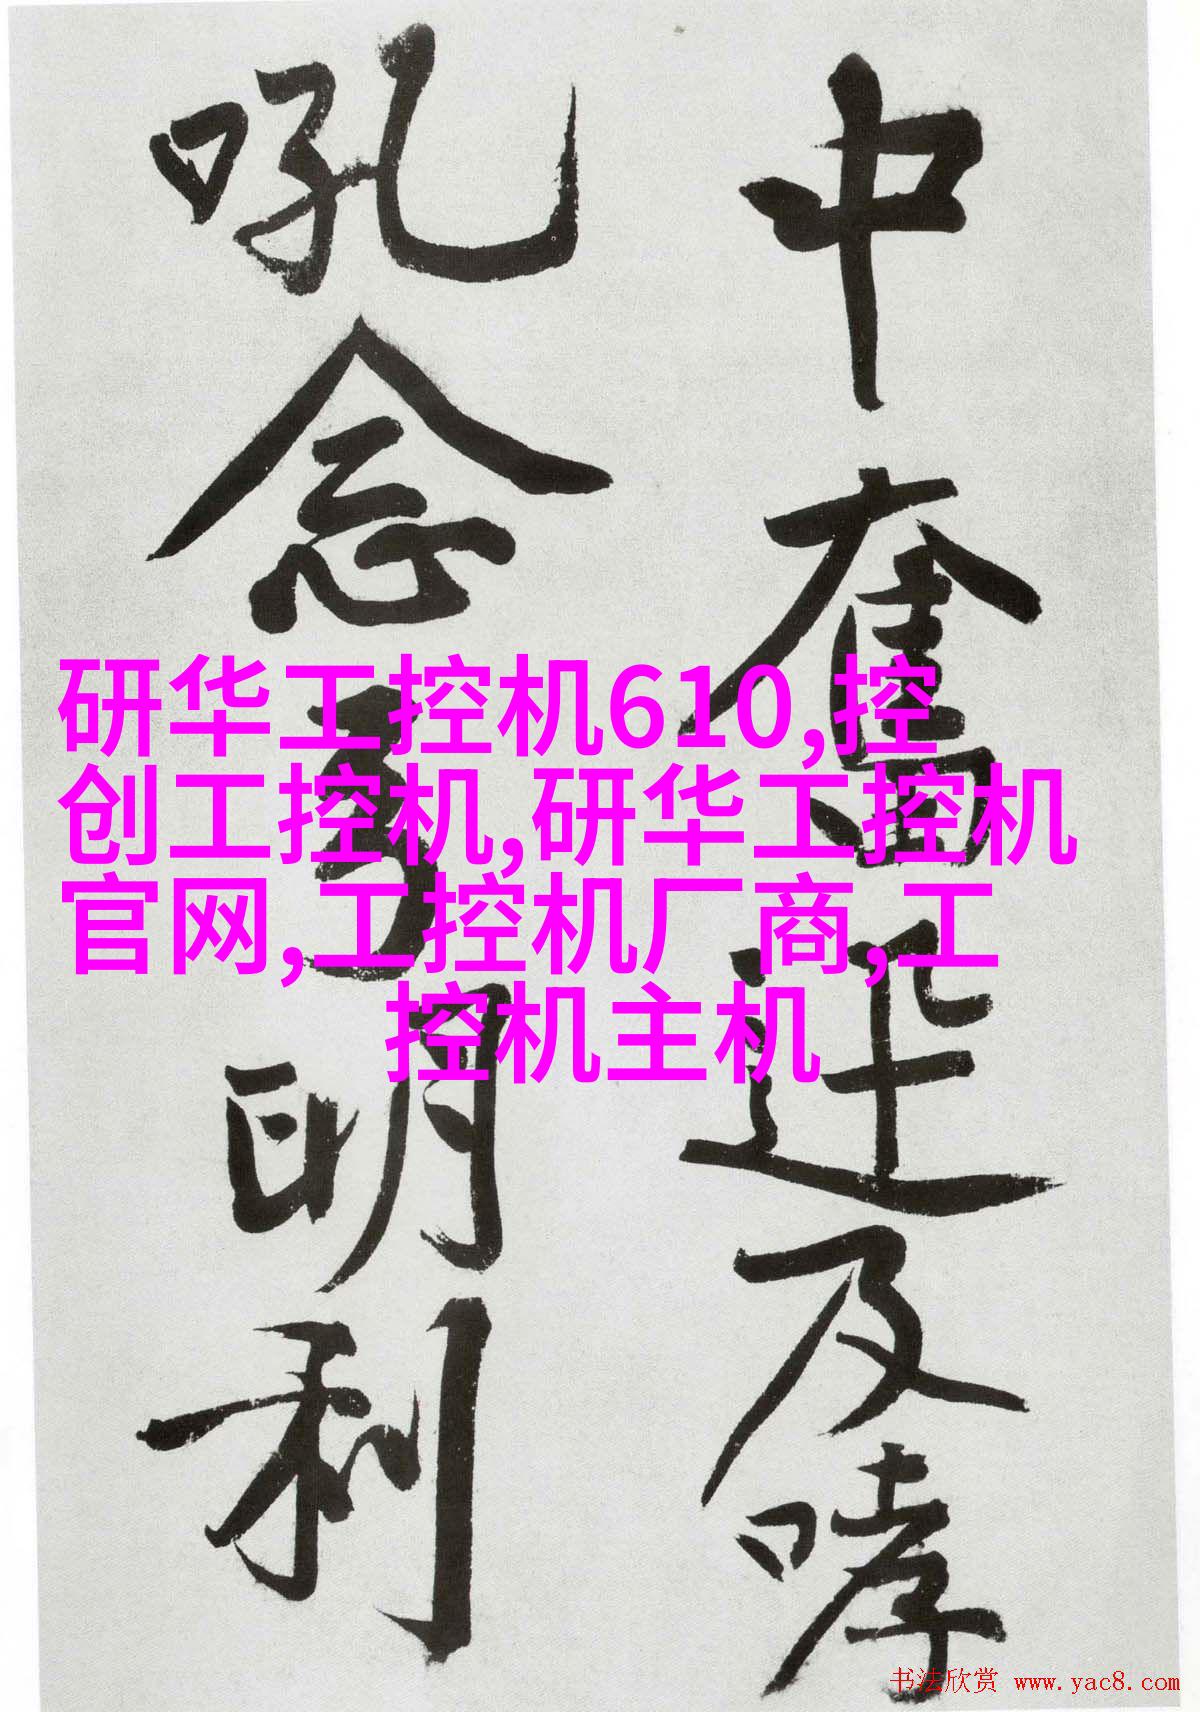 中奮迅及哮
吼念
明利
研华工控机610,控
创工控机,研华工控机
官网,工控机厂商,工
控机主机
书法欣赏 www.yac8.com